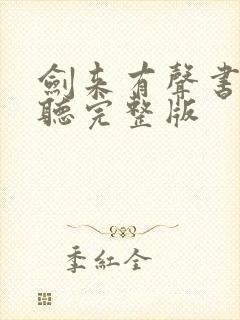 劍来有聲書
聽完整版
季紅全